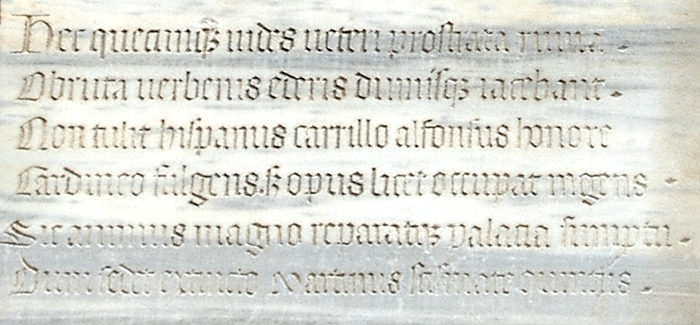 Hec quecunqꝫ uides ueteri prostrata ruina .
Obruta uerbenis ederis dumisqꝫ iacebant .
Non tulit hispanus carrillo alfonsus honore
Cardineo fulgens sꝫ opus licet occupat ingens .
Sic animus magno reparatqꝫ palatia sumptu .
Dum sedet extincto Martinus scismate quintus .